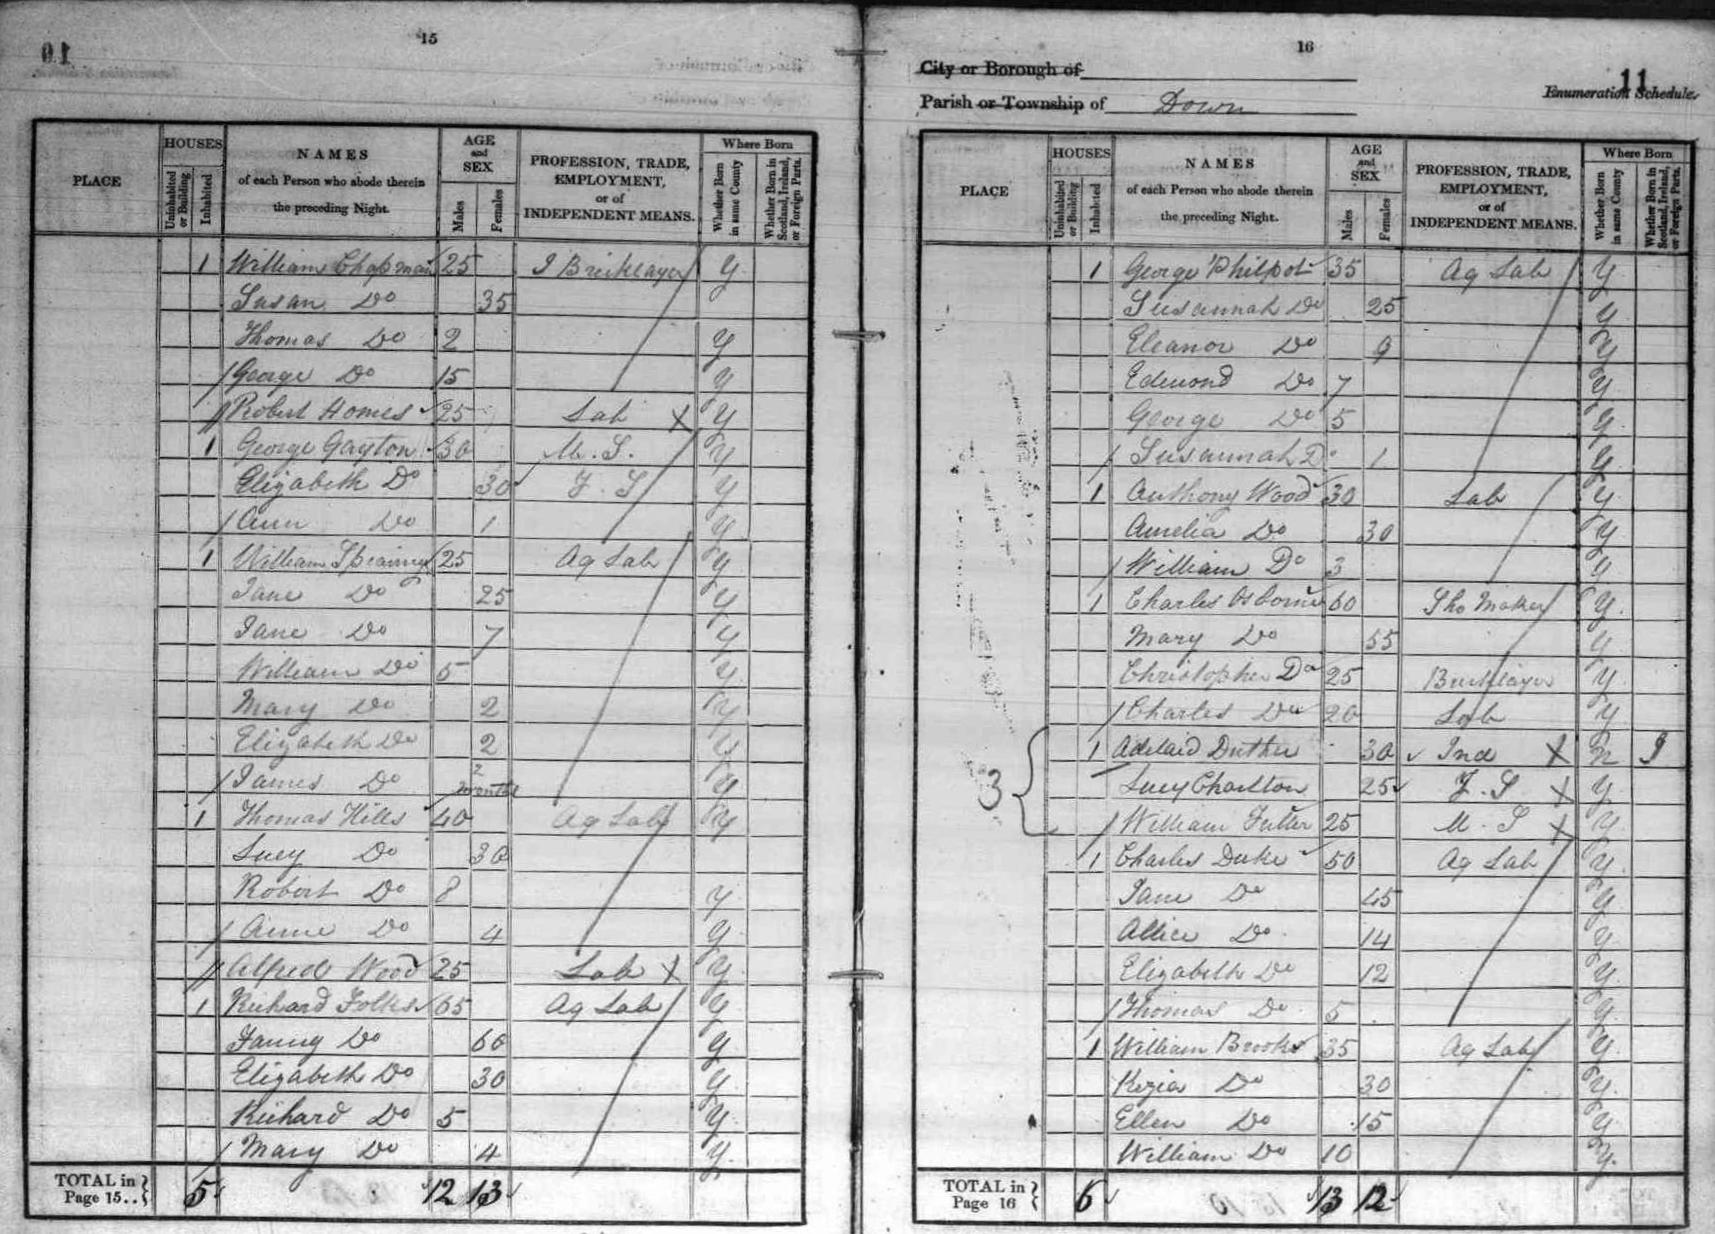 15
10
PLACE
HOUSES
Uninhabited or Building
Inhabited
NAMES
of each Person who abode therein
the preceding Night.
AGE
and
SEX
Males
Females
PROFESSION, TRADE,
EMPLOYMENT,
or of
INDEPENDENT MEANS.
Where Born
Whether Born in same County
Whether Born in Scotland, Ireland, or Foreign Parts.
1 William Chapman 25 J Bricklayer Y
Susan Do 35
Thomas Do 2 Y
George Do 15 Y
Robert Homes 25 Lab X Y
1 George Gayton 30 M. S. Y
Elizabeth Do 30 F. S Y
Ann Do 1 Y
1 William 25 Ag Lab Y
Jane Do 25 Y
Jane Do 7 Y
William Do 5 Y
Mary Do 2 Y
Elizabeth Do 2 Y
James Do 2 months Y
1 Thomas Hills 40 Ag Lab Y
Lucy Do 30
Robert Do 8 Y
Anne Do 4 Y
Alfred Wood 25 Lab X Y
1 Richard Folkes 65 Ag Lab Y
Fanny Do 60 Y
Elizabeth Do 30 Y
Richard Do 5 Y
Mary Do 4 Y
TOTAL in
Page 15.. 5 12 13
16
City or Borough of
11
Enumeration Schedule.
Parish or Township of Down
PLACE
HOUSES
Uninhabited or Building
Inhabited
NAMES
of each Person who abode therein
the preceding Night.
AGE
and
SEX
Males
Females
PROFESSION, TRADE,
EMPLOYMENT,
or of
INDEPENDENT MEANS.
Where Born
Whether Born in same County
Whether Born in Scotland, Ireland, or Foreign Parts.
1 George Philpot 35 Ag Lab Y
Susannah Do 25 Y
Eleanor Do 9 Y
Edmond Do 7 Y
George Do 5 Y
Susannah D 1 Y
1 Anthony Wood 30 Lab Y
Amelia Do 30 Y
William Do 3 Y
1 Charles Osborne 60 Sho Maker Y
Mary Do 55 Y
Christopher Do 25 Bricklayer Y
Charles Do 20 Lab Y
1 Adelaid 30 Ind X N J
3 Lucy Charlton 25 F. S X Y
William Fuller 25 M. S X Y
1 Charles Duke 50 Ag Lab Y
Jane Do 45 Y
Allice Do 14 Y
Elizabeth Do 12 Y
Thomas Do 5 Y
1 William Brooks 35 Ag Lab Y
Kezia Do 30 Y
Ellen Do 15 Y
William Do 10 Y
TOTAL in
Page 16 6 13 12